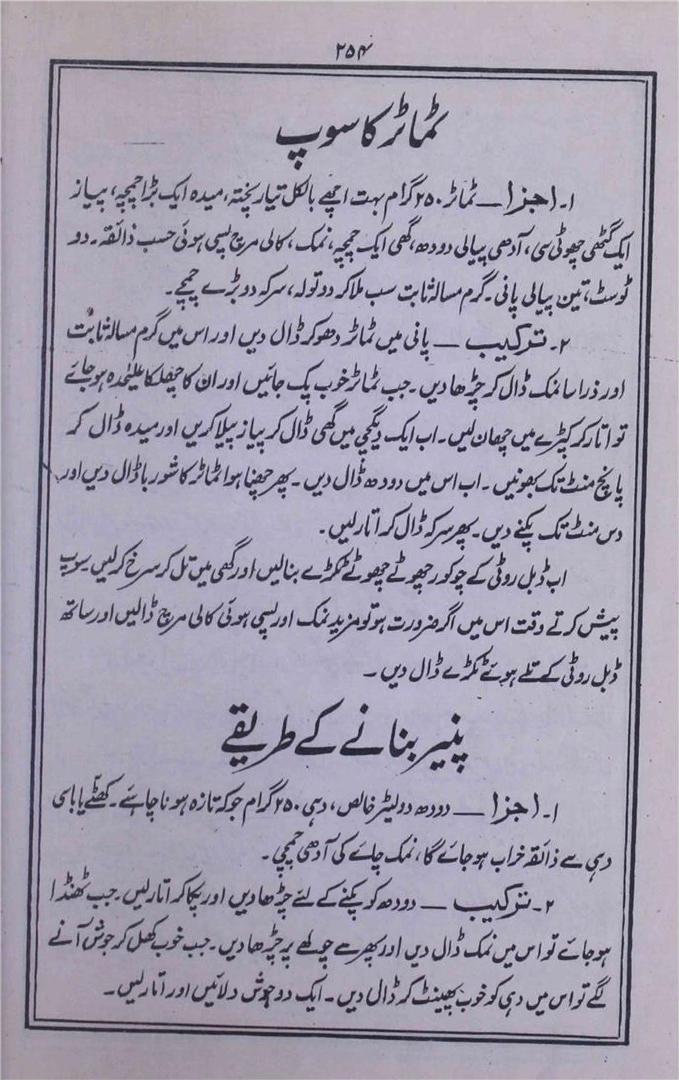 ۲۵۴
ٹماٹر کا سوپ
۱۔ اجزا — ٹماٹر ۲۵۰ گرام بہت اچھے بالکل تیار پختہ، میدہ ایک بڑا چمچہ، پیاز
ایک گٹھی چھوٹی سی، آدھی پیالی دودھ، گھی ایک چمچہ، نمک، کالی مرچ پسی ہوئی حسب ذائقہ۔ دو
ٹوسٹ، تین پیالی پانی۔ گرم مسالہ ثابت سب ملا کر دو تولہ، سرکہ دو بڑے چمچے۔
۲۔ ترکیب — پانی میں ٹماٹر دھو کر ڈال دیں اور اس میں گرم مسالہ ثابت
اور ذرا سا نمک ڈال کر چڑھا دیں۔ جب ٹماٹر خوب پک جائیں اور ان کا چھلکا علیٰحدہ ہو جائے
تو اتار کر کپڑے میں چھان لیں۔ اب ایک دیگچی میں گھی ڈال کر پیاز پیلا کریں اور میدہ ڈال کر
پانچ منٹ تک بھونیں۔ اب اس میں دودھ ڈال دیں۔ پھر چھنا ہوا ٹماٹر کا شوربا ڈال دیں اور
دس منٹ تک پکنے دیں۔ پھر سرکہ ڈال کر اتار لیں۔
اب ڈبل روٹی کے چوکور چھوٹے چھوٹے ٹکڑے بنا لیں اور گھی میں تل کر سرخ کر لیں سوپ
پیش کرتے وقت اس میں اگر ضرورت ہو تو مزید نمک اور پسی ہوئی کالی مرچ ڈالیں اور ساتھ
ڈبل روٹی کے تلے ہوئے ٹکڑے ڈال دیں۔
پنیر بنانے کے طریقے
۱۔ اجزا — دودھ دو لیٹر خالص، دہی ۲۵۰ گرام جو کہ تازہ ہونا چاہئے۔ کھٹے یا باسی
دہی سے ذائقہ خراب ہو جائے گا، نمک چائے کی آدھی چمچی۔
۲۔ ترکیب — دودھ کو پکنے کے لئے چڑھا دیں اور پکا کر اتار لیں۔ جب ٹھنڈا
ہو جائے تو اس میں نمک ڈال دیں اور پھر سے چولہے پر چڑھا دیں۔ جب خوب کھل کر جوش آنے
لگے تو اس میں دہی کو خوب پھینٹ کر ڈال دیں۔ ایک دو جوش دلائیں اور اتار لیں۔